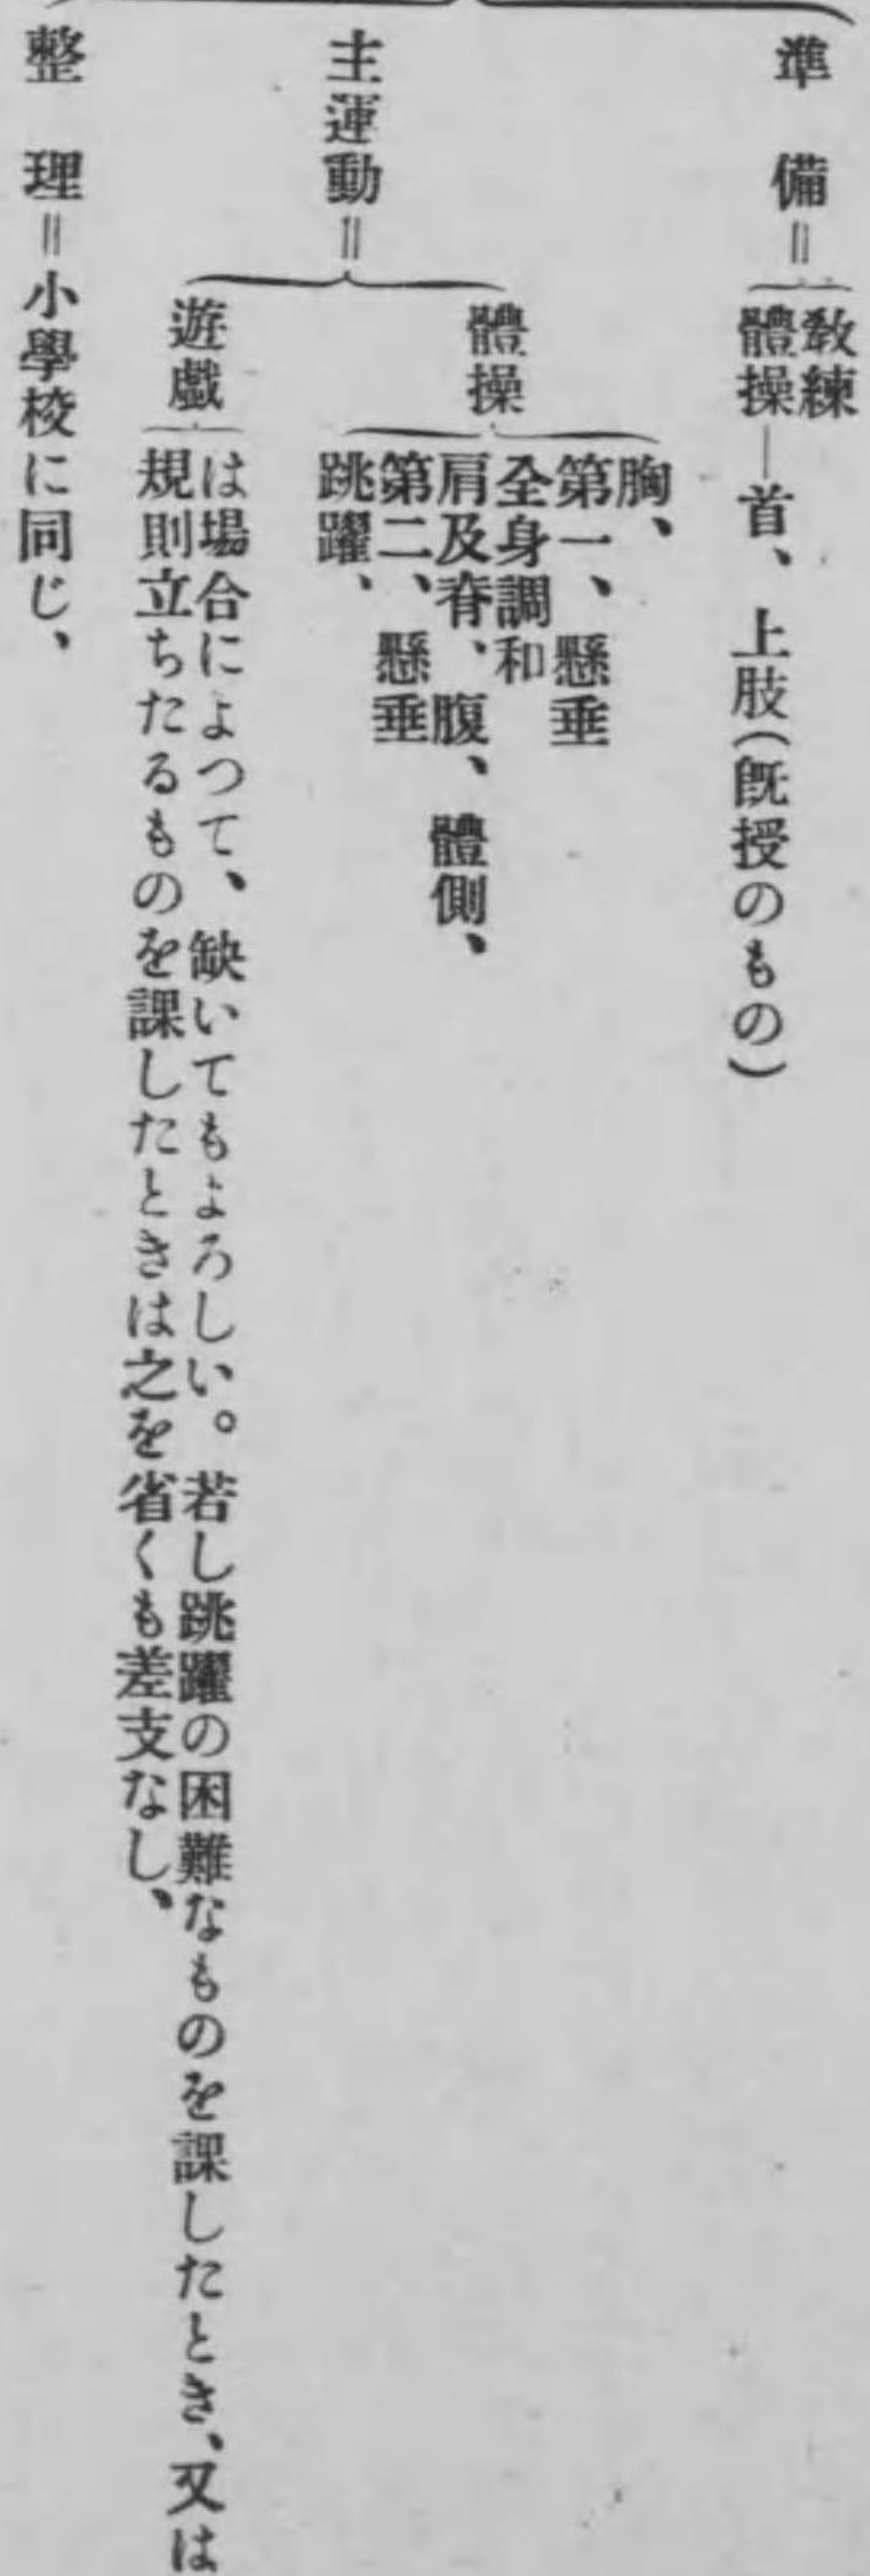 準備＝
教練
體操―首、上肢（既授のもの）
主運動＝
體操
胸、
第一、懸垂
全身調和
肩及脊、腹、體側、
第二、懸垂
跳躍、
遊戲
は場合によつて、缺いてもよろしい。若し跳躍の困難なものを課したとき、又は
規則立ちたるものを課したときは之を省くも差支なし、
整理＝小學校に同じ、